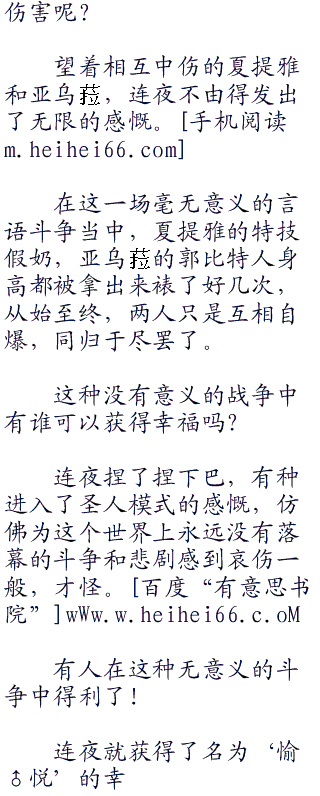 伤害呢？
望着相互中伤的夏提雅
和亚乌菈，连夜不由得发出
了无限的感慨。[手机阅读
m.heihei66.com]
在这一场毫无意义的言
语斗争当中，夏提雅的特技
假奶，亚乌菈的郭比特人身
高都被拿出来裱了好几次，
从始至终，两人只是互相自
爆，同归于尽罢了。
这种没有意义的战争中
有谁可以获得幸福吗？
连夜捏了捏下巴，有种
进入了圣人模式的感慨，仿
佛为这个世界上永远没有落
幕的斗争和悲剧感到哀伤一
般，才怪。[百度“有意思书
院”]wWw.w.heihei66.c.oM
有人在这种无意义的斗
争中得利了！
连夜就获得了名为‘愉
♂悦’的幸